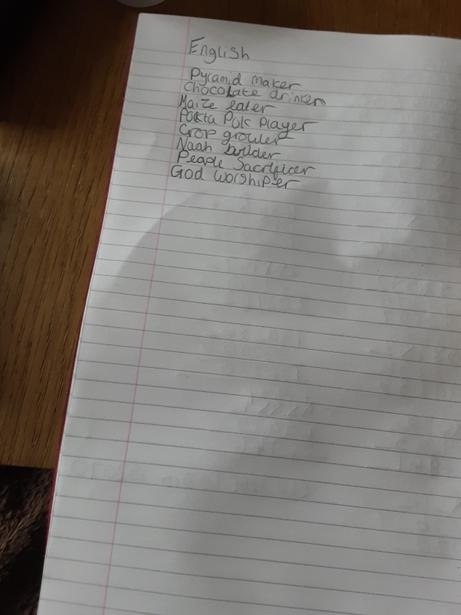 English
Pyramid maker
Chocolate drinker
Maize eater
Pokta Pok Player
Crop grower
Naah builder
People Sacrificer
God worshiper